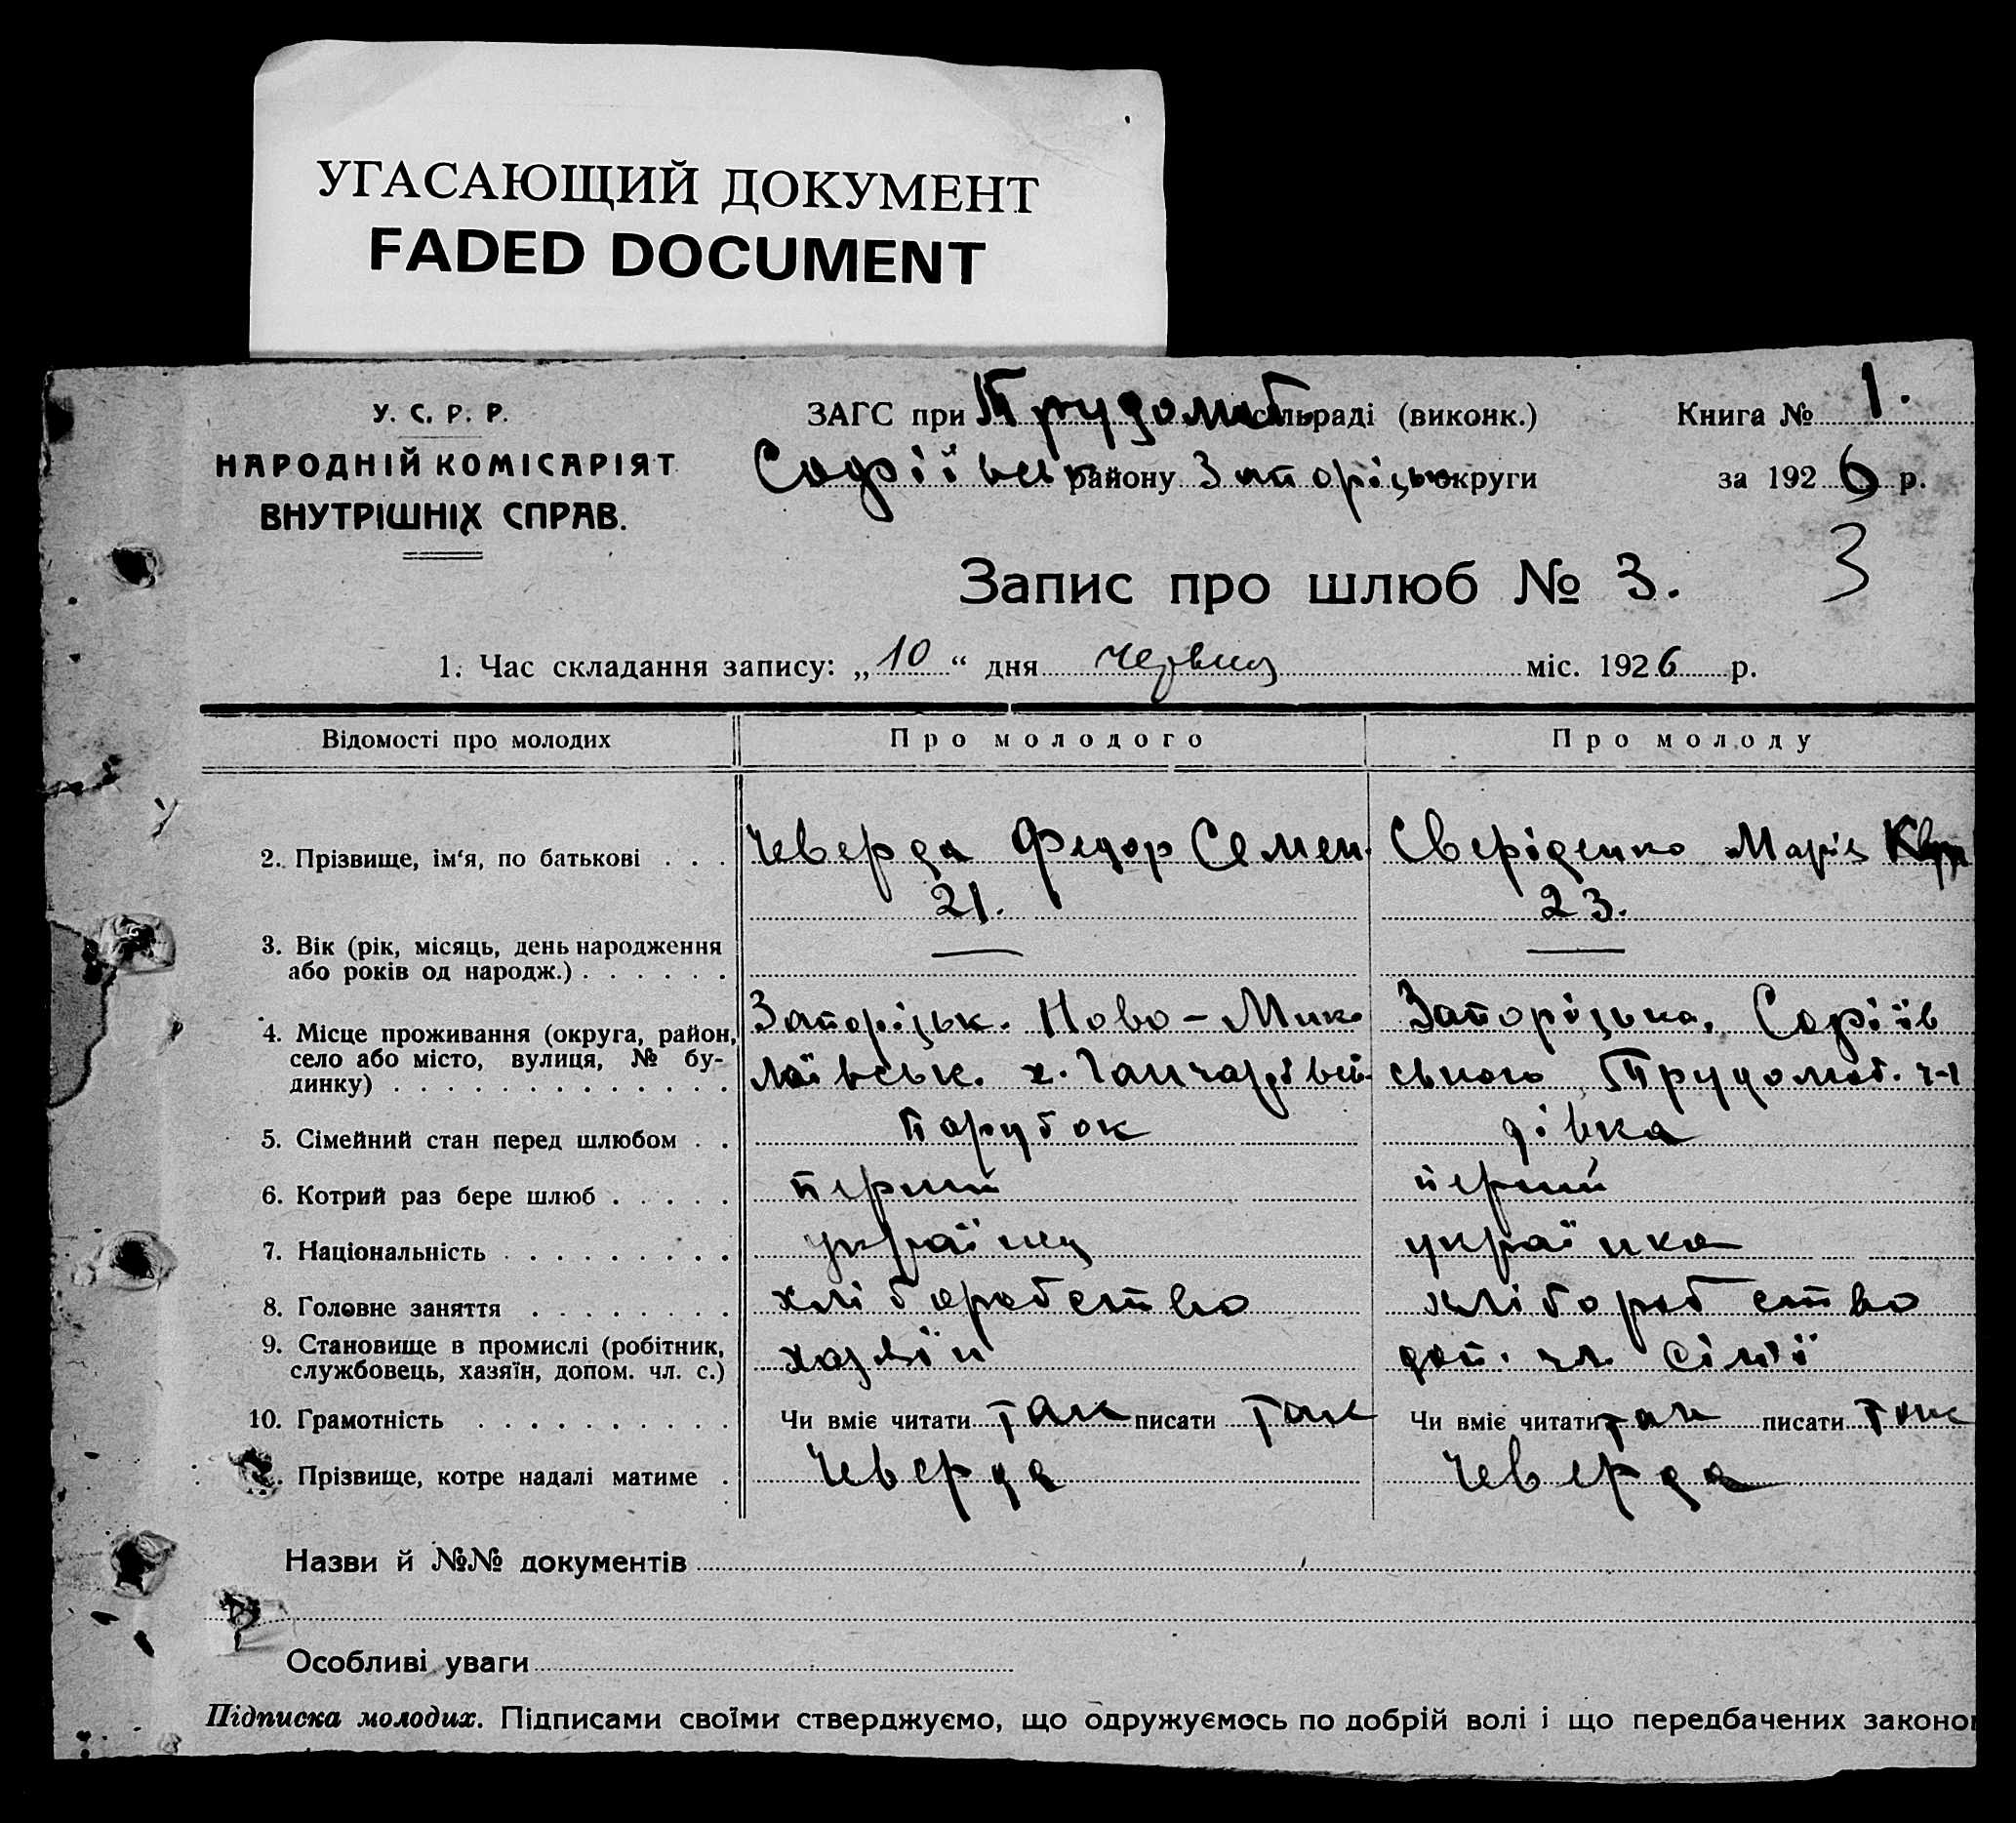 УГАСАЮЩИЙ ДОКУМЕНТ
FADED DOCUMENT
У. С. Р. Р.
НАРОДНІЙ КОМІСАРІЯТ
ВНУТРІШНІХ СПРАВ.
ЗАГС при Трудолюб. сільраді (виконк.)
Софіївськ району Запорізьк округи
Книга № 1.
за 1926 р.
3
Запис про шлюб № 3.
1. Час складання запису: „10“ дня червня міс. 1926 р.
Відомості про молодих Про молодого Про молоду
2. Прізвище, ім'я, по батькові . . . Чеверда Федор Семен. Свєріденко Марія
21. 23.
3. Вік (рік, місяць, день народження
або років од народж.) . . . . . .
4. Місце проживання (округа, район, Запорізьк. Ново-Мик Запорізька, Софіїв
село або місто, вулиця, № бу-
динку) . . . . . . . . . . . . . лаївськ. х. ського Трудолюб.
5. Сімейний стан перед шлюбом . . Парубок дівка
6. Котрий раз бере шлюб . . . . . перший перший
7. Національність . . . . . . . . . українец українка
8. Головне заняття . . . . . . . . хліборобство хліборобство
9. Становище в промислі (робітник,
службовець, хазяїн, допом. чл. с.) хазяїн доп. чл. сім'ї
10. Грамотність . . . . . . . . . . Чи вміє читати так писати так Чи вміє читати так писати так
Прізвище, котре надалі матиме . Чеверда Чеверда
Назви й №№ документів
Особливі уваги
Підписка молодих. Підписами своїми стверджуємо, що одружуємось по добрій волі і що передбачених законо